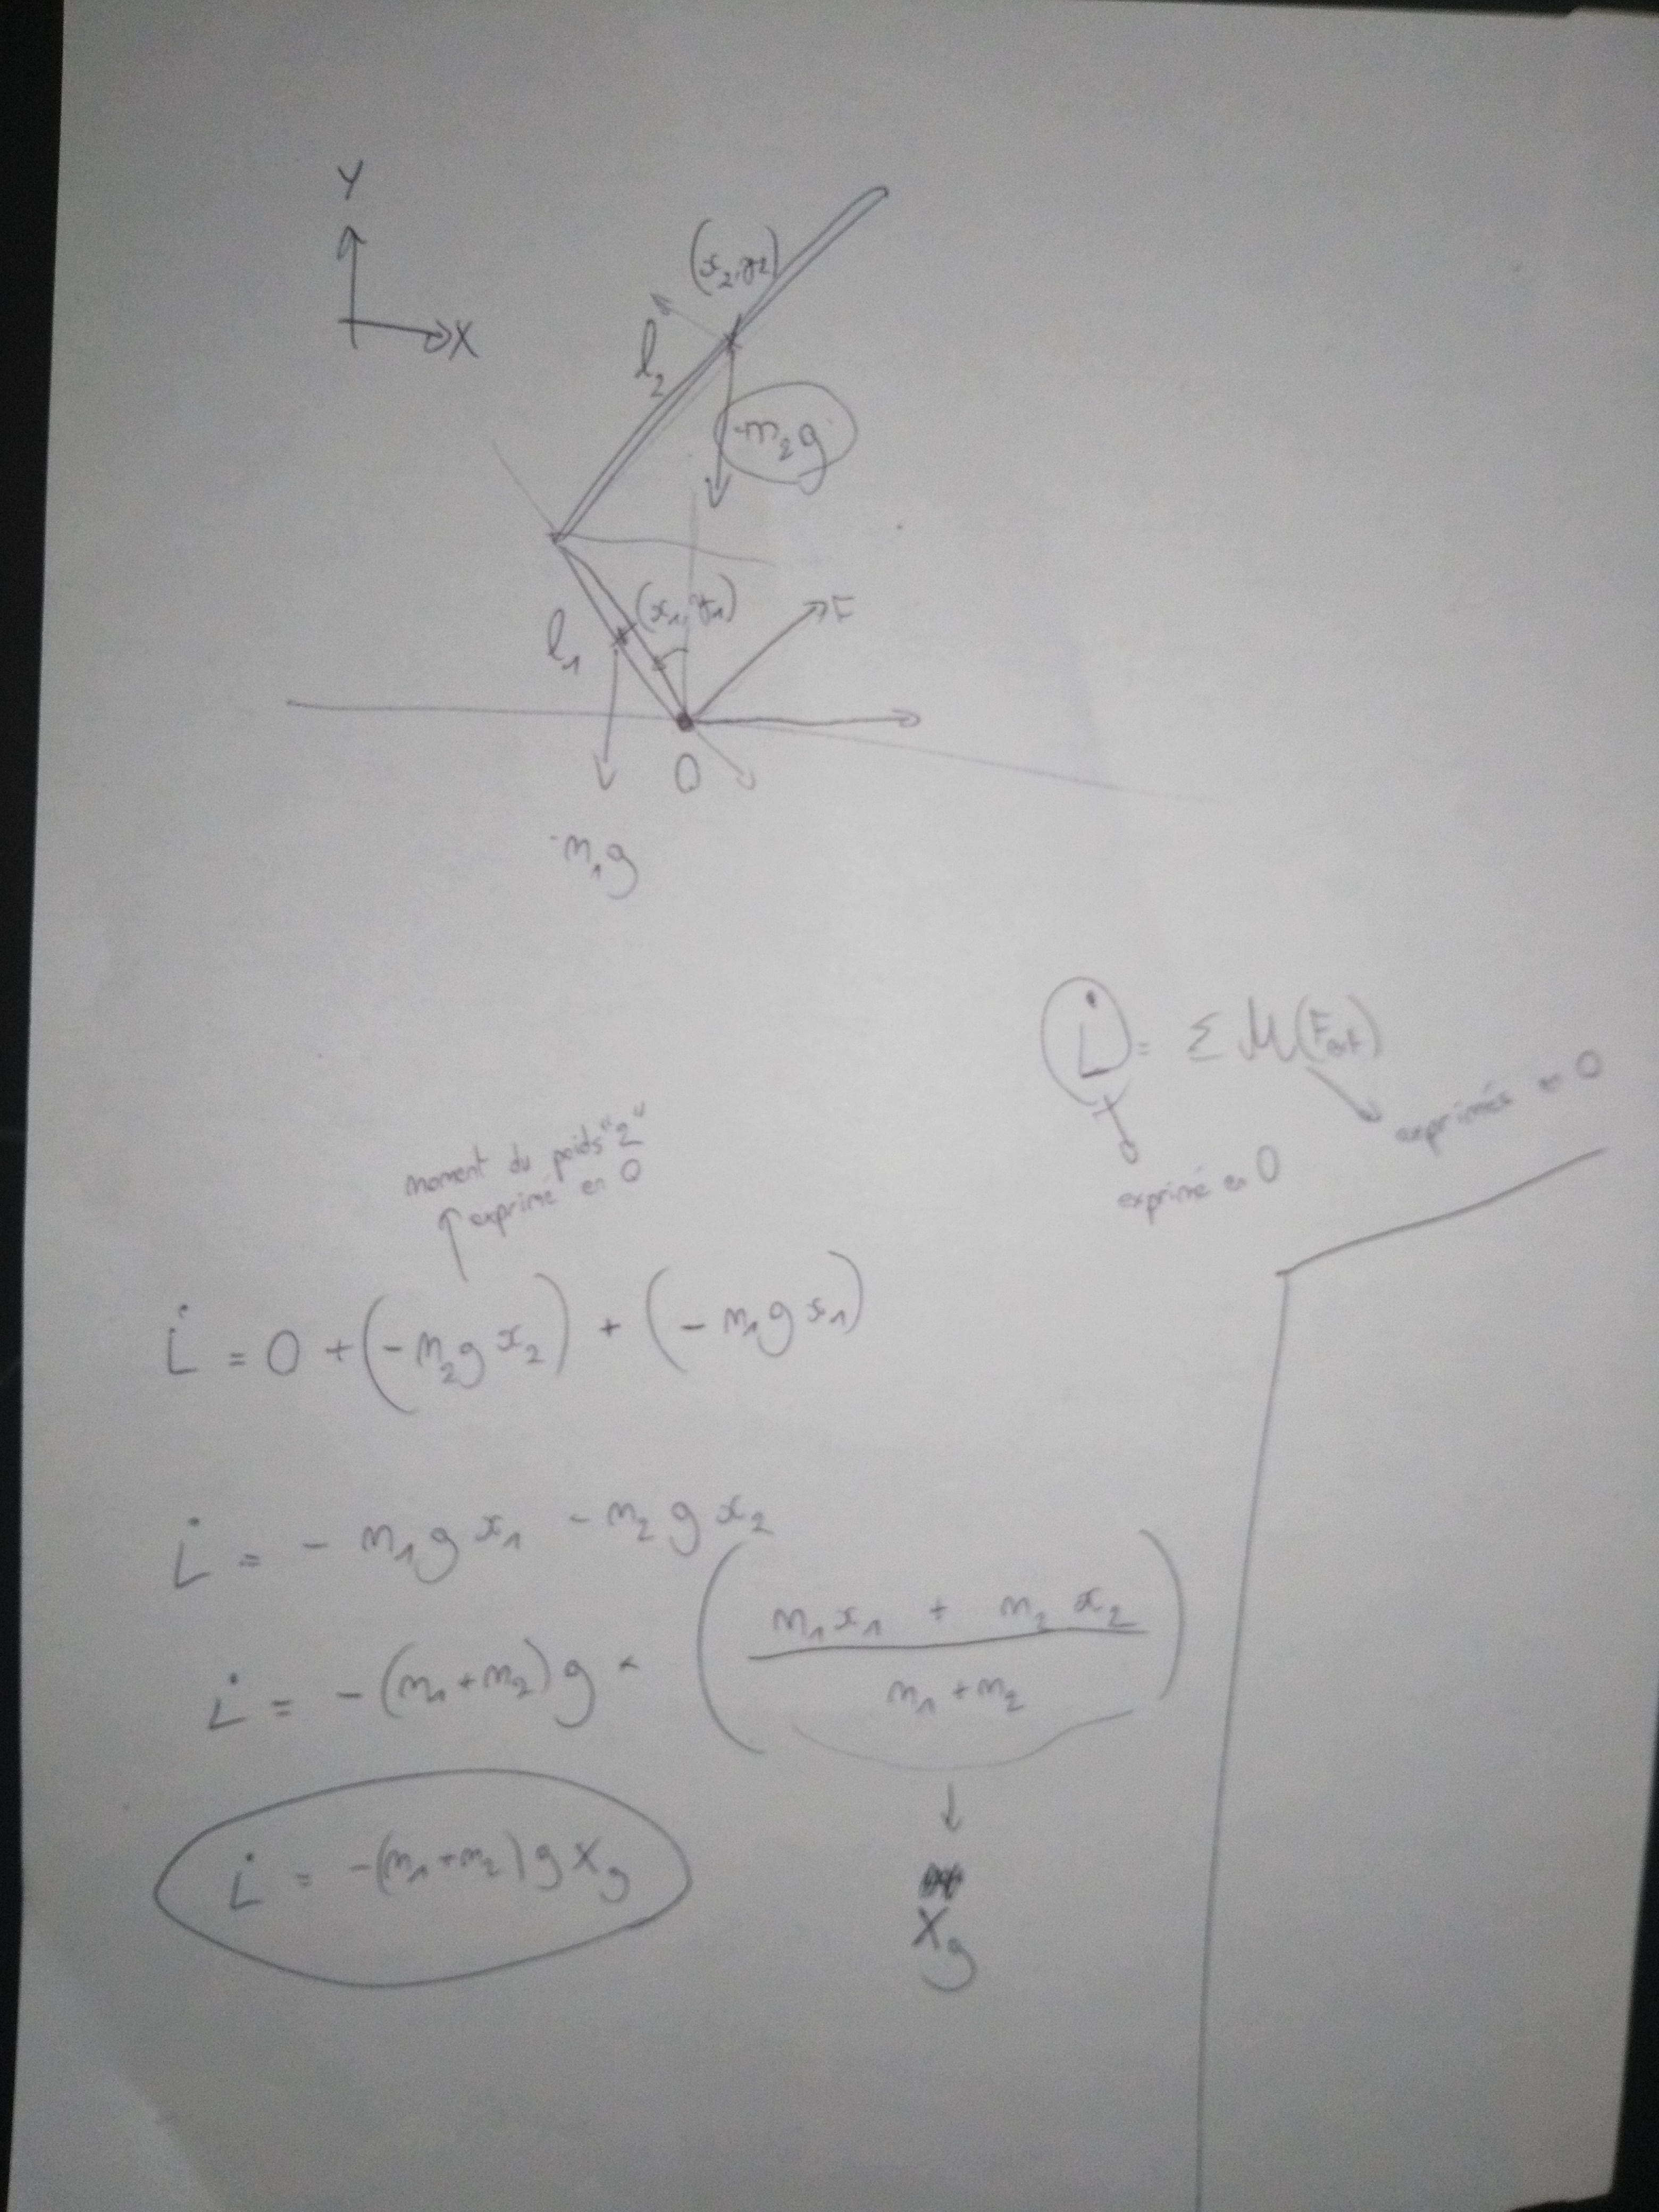 Y
X
(x₂, y₂)
l₂
-m₂g
(x₁, y₁)
l₁
F
O
-m₁g
L̇ = Σ M(Fext)
exprimés en O
exprimé en O
moment du poids "2"
exprimé en O
L̇ = 0 + (-m₂g x₂) + (-m₁g x₁)
L̇ = - m₁g x₁ - m₂g x₂
L̇ = -(m₁+m₂)g × ( (m₁x₁ + m₂x₂) / (m₁+m₂) )
Xg
L̇ = -(m₁+m₂)g Xg